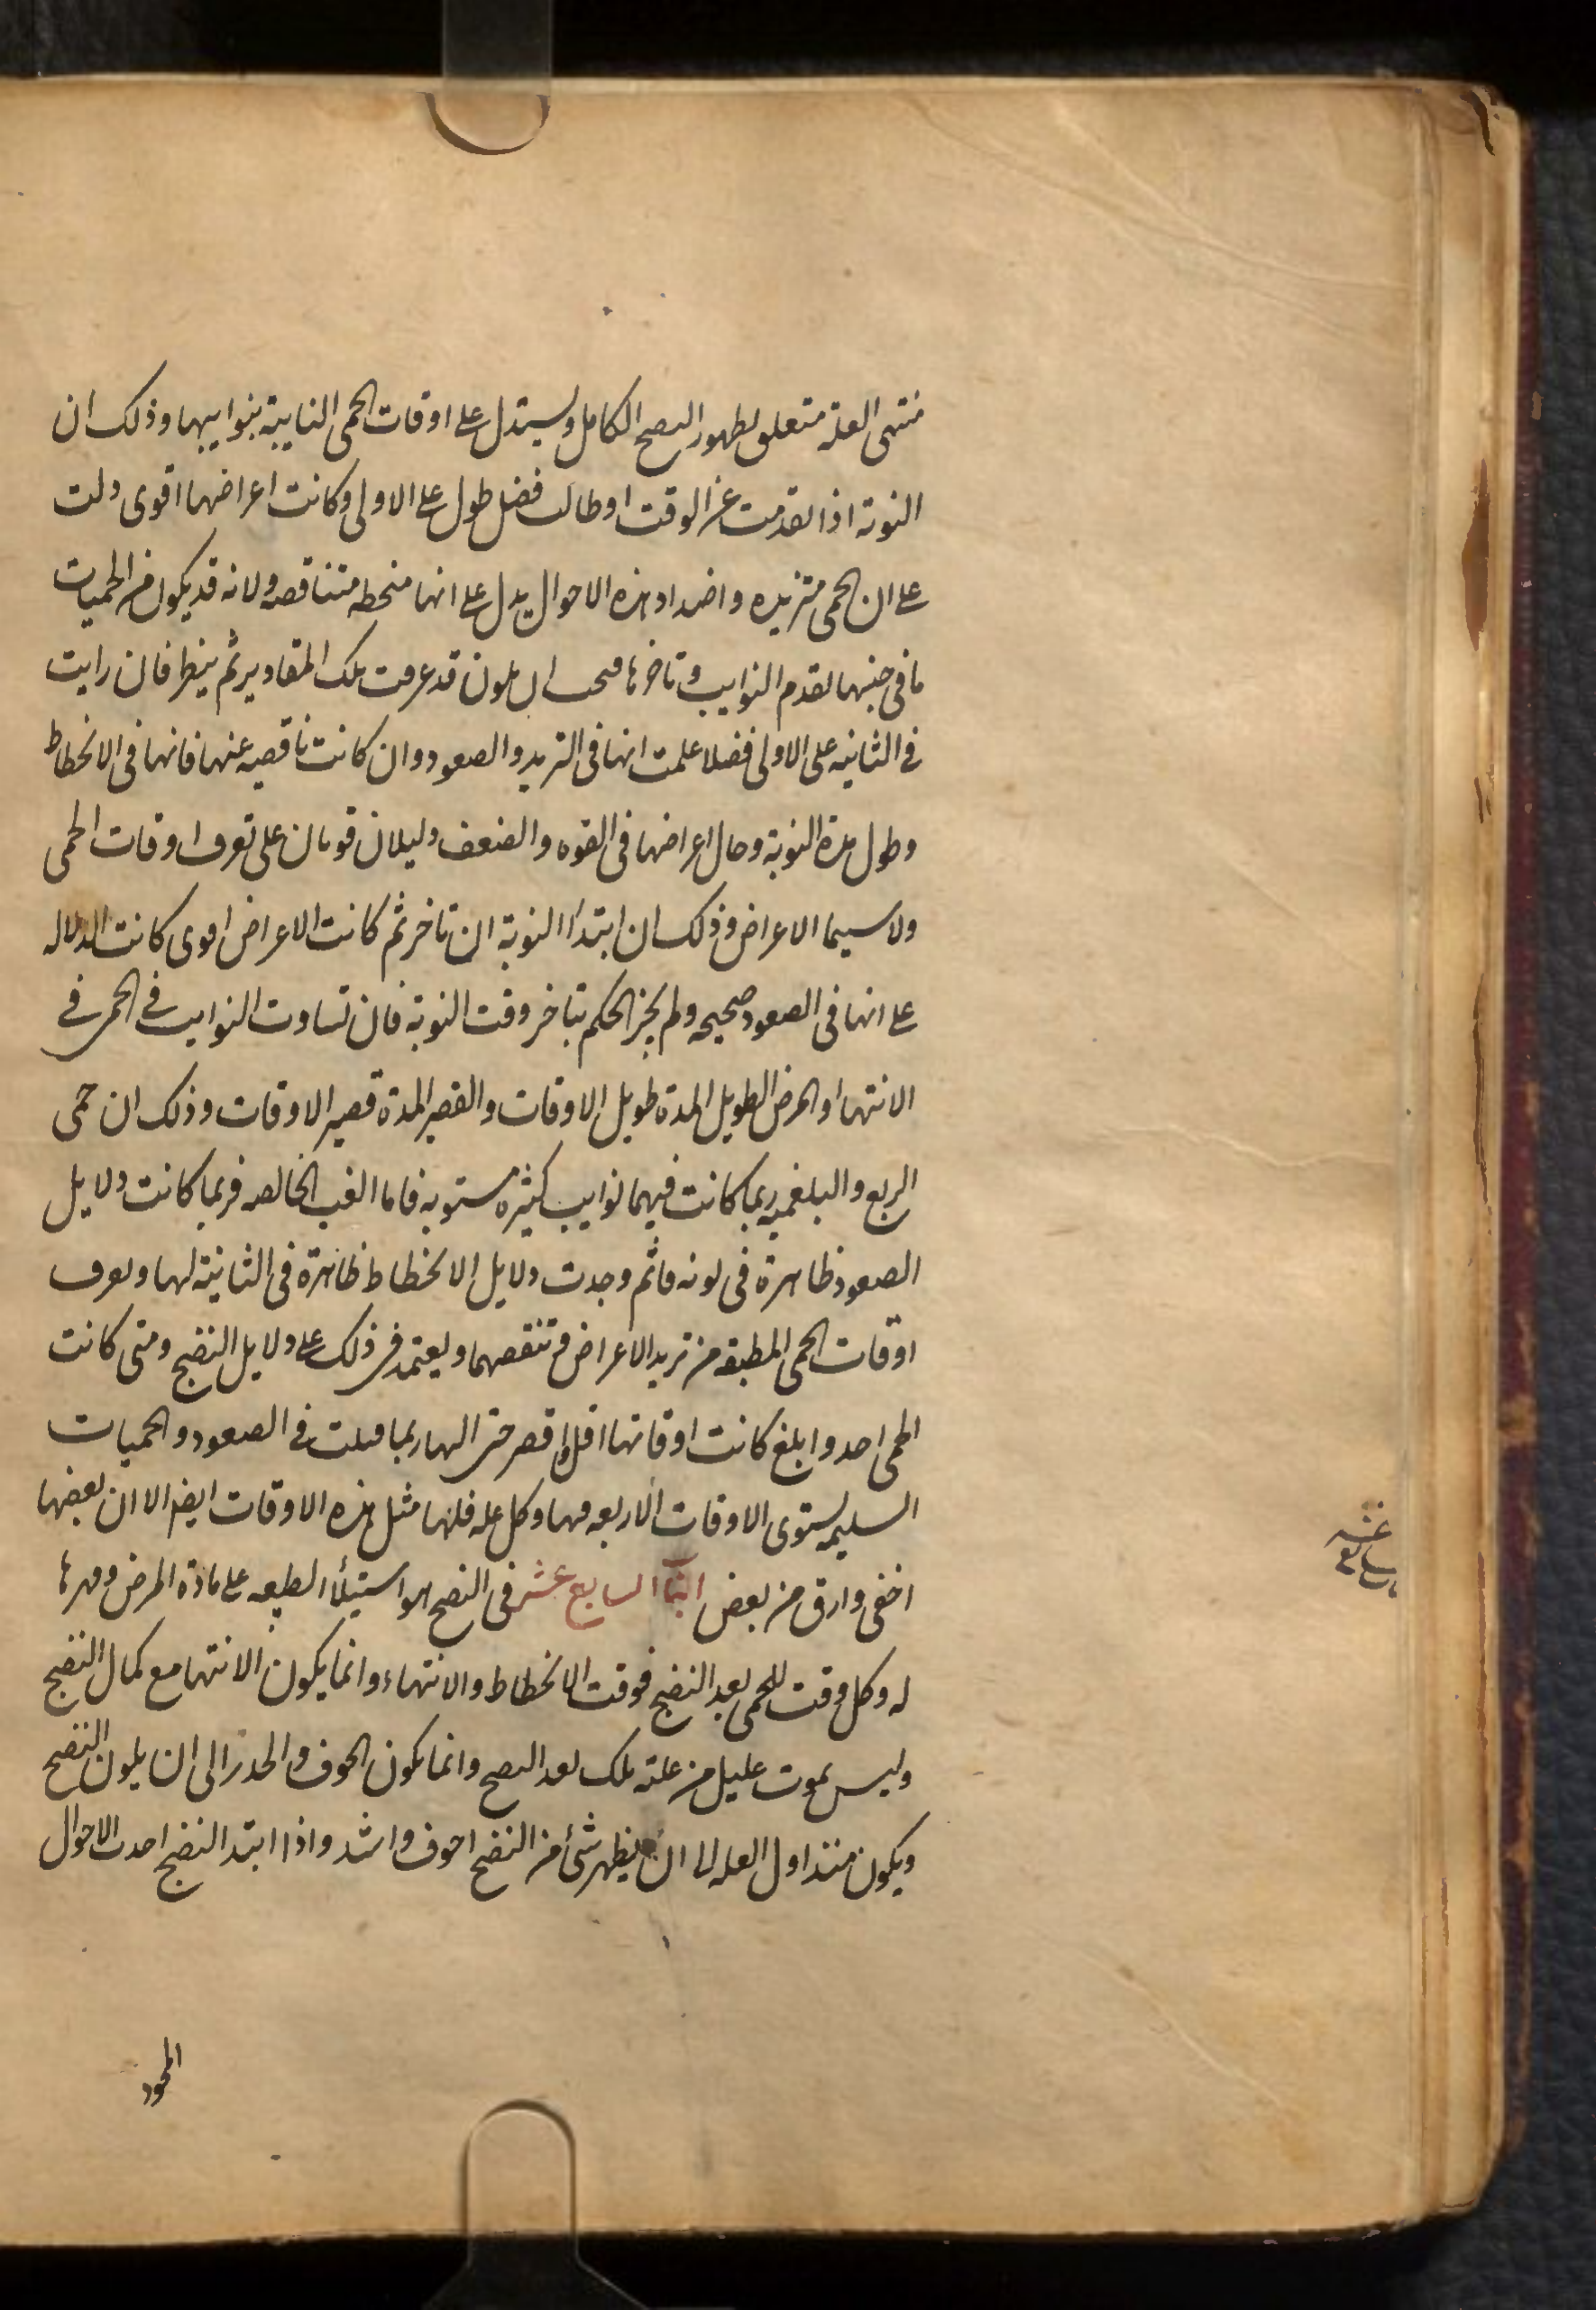 منتهى العلة متعلق بظهور النضج الكامل ويستدل على اوقات الحمى النايبة بنوايبها وذلك ان
النوبة اذا تقدمت عن الوقت او طالت فضل طول على الاولى وكانت اعراضها اقوى دلت
على ان الحمى متزيده واضداد هذه الاحوال يدل على انها منحطه متناقصه ولانه قد يكون من الحميات
ما فى جنسها تقدم النوايب وتاخرها فيجب ان يكون قد عرفت تلك المقادير ثم ينظر فان رايت
فى الثانيه على الاولى فضلا علمت انها فى التزيد والصعود وان كانت ناقصه عنها فانها فى الانحطاط
وطول مدة النوبة وحال اعراضها فى القوه والضعف دليلان قويان على تعرف اوقات الحمى
ولا سيما الاعراض وذلك ان ابتدأ النوبة ان تاخر ثم كانت الاعراض اقوى كانت الدلاله
على انها فى الصعود صحيحه ولم يجز الحكم بتاخر وقت النوبة فان تساوت النوايب فى الحمى فى
الانتها والمرض الطويل المدة طويل الاوقات والقصير المدة قصير الاوقات وذلك ان حمى
الربع والبلغميه ربما كانت فيهما نوايب كثيره مستويه فاما الغب الخالصه فربما كانت دلايل
الصعود ظاهرة فى نوبه ما ثم وجدت دلايل الانحطاط ظاهرة فى الثانية لها وتعرف
اوقات الحمى المطبقه من تزيد الاعراض وتنقصها ويعتمد فى ذلك على دلايل النضج ومتى كانت
الحمى احد وابلغ كانت اوقاتها اقل واقصر حتى انها ربما قتلت فى الصعود والحميات
السليمه يستوى الاوقات الاربعه فيها وكل عله فلها مثل هذه الاوقات ايضا الا ان بعضها
اخفى وادق من بعض البَاب السابع عشر فى النضج هو استيلأ الطبيعه على مادة المرض وقهرها
له وكل وقت للحمى بعد النضج فوقت الانحطاط والانتهاء وانما يكون الانتها مع كمال النضج
وليس يموت عليل من علته تلك بعد النضج وانما يكون الخوف والحذر الى ان يكون النضج
ويكون منذ اول العله الى ان يظهر شئ من النضج اخوف واشد واذا ابتد النضج احدث الاحوال
المحمود